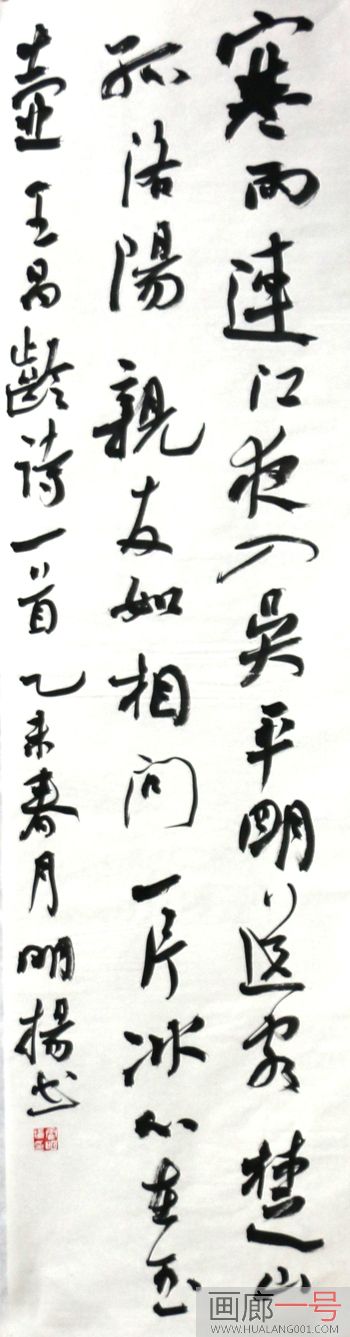 寒雨連江夜入吳平明送客楚山
孤洛陽親友如相问一片冰心在玉
壺王昌齡诗一首乙未春月明揚书
画廊一号
WWW.HUALANG001.COM